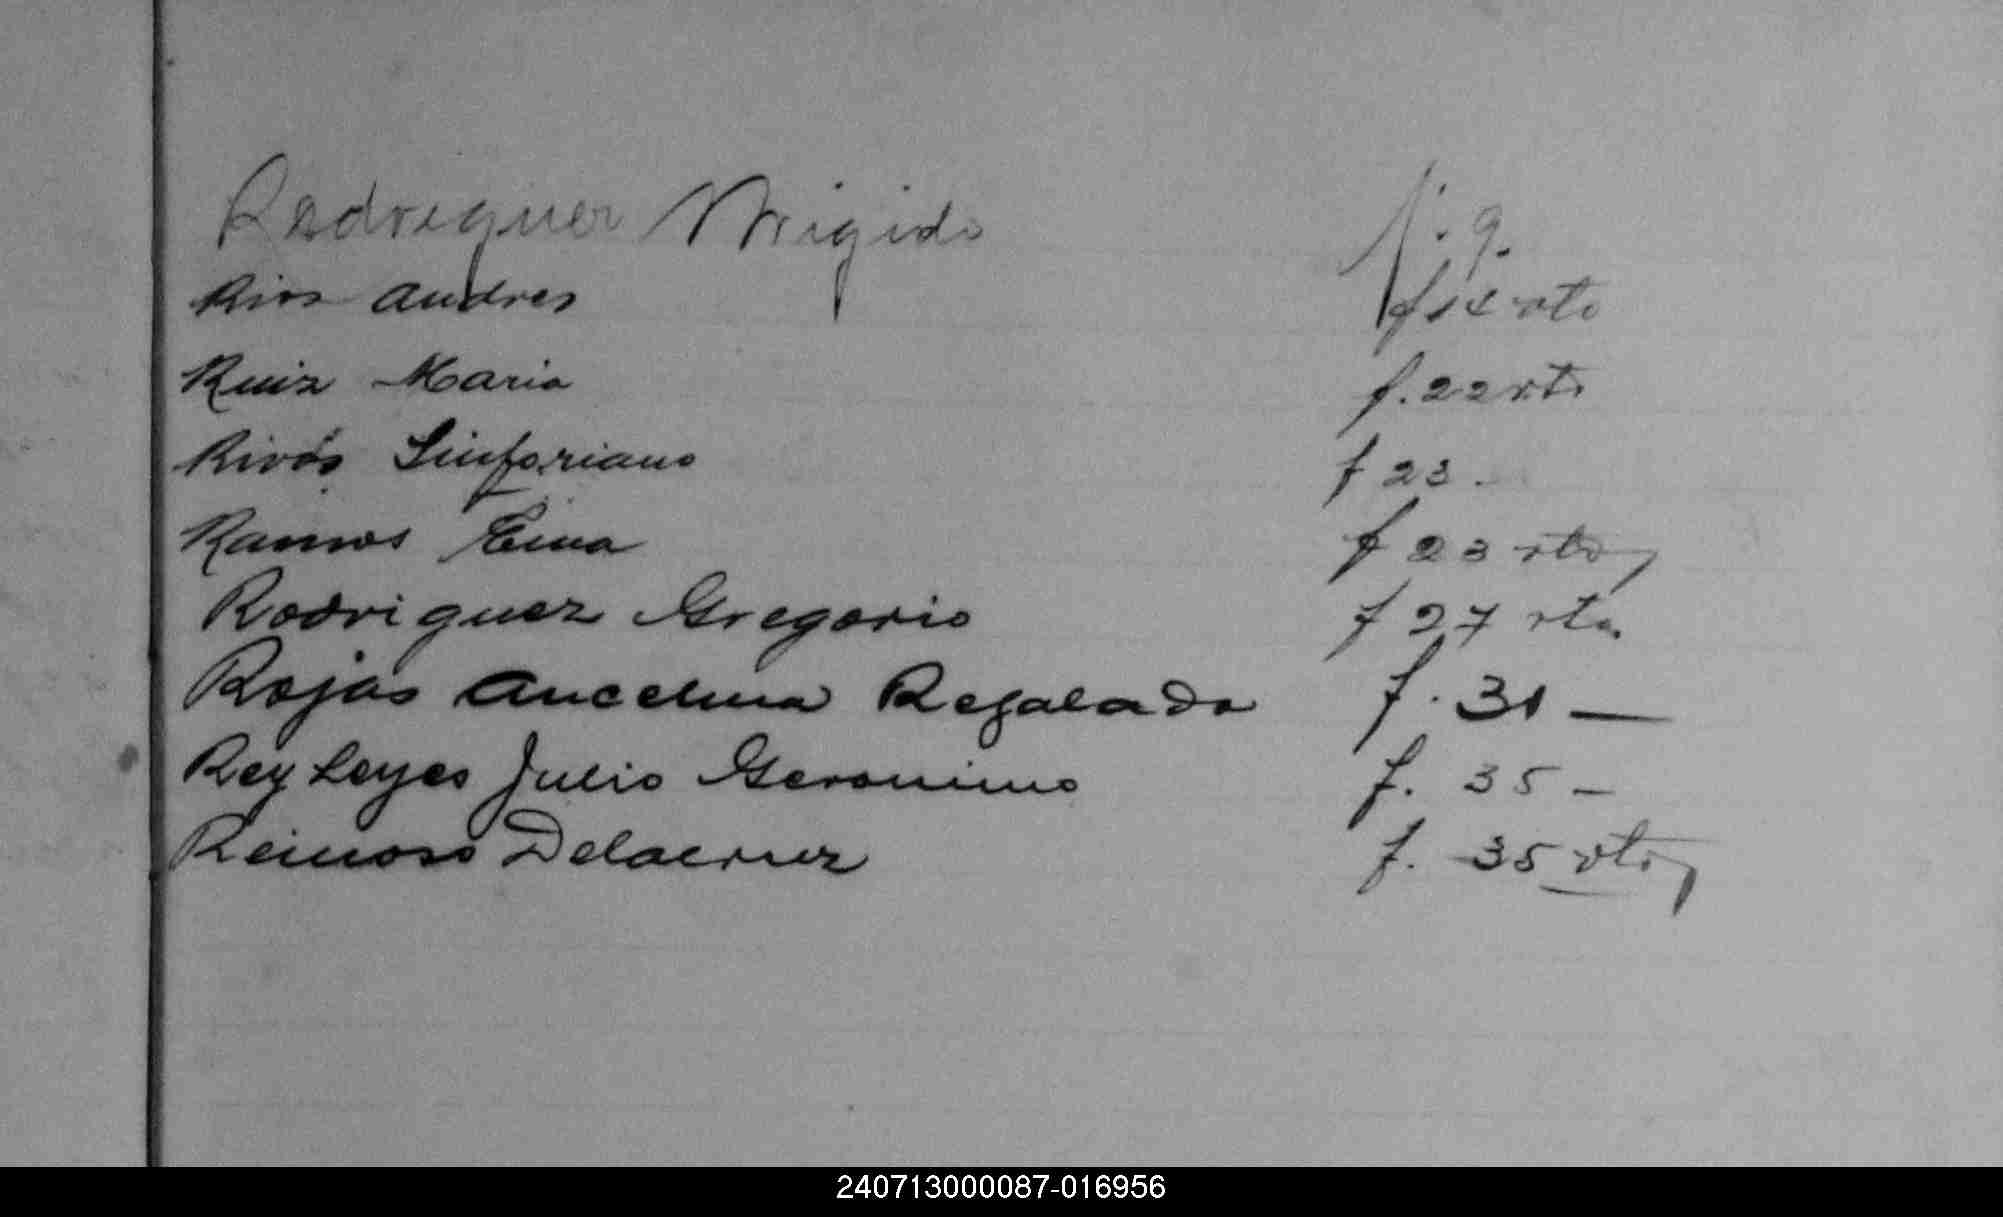 Rodriguez Brigido N. 9.
Rios Andres f 14 vto
Ruiz Maria f. 22 vto
Rivas Sinforiano f 23.
Ramos Ema f 23 vto,
Rodriguez Gregorio f 27 vto.
Rojas Ancelma Regalada f. 31 —
Rey Leyes Julio Geronimo f. 35 —
Reinoso Delacruz f. 35 vto,
240713000087-016956